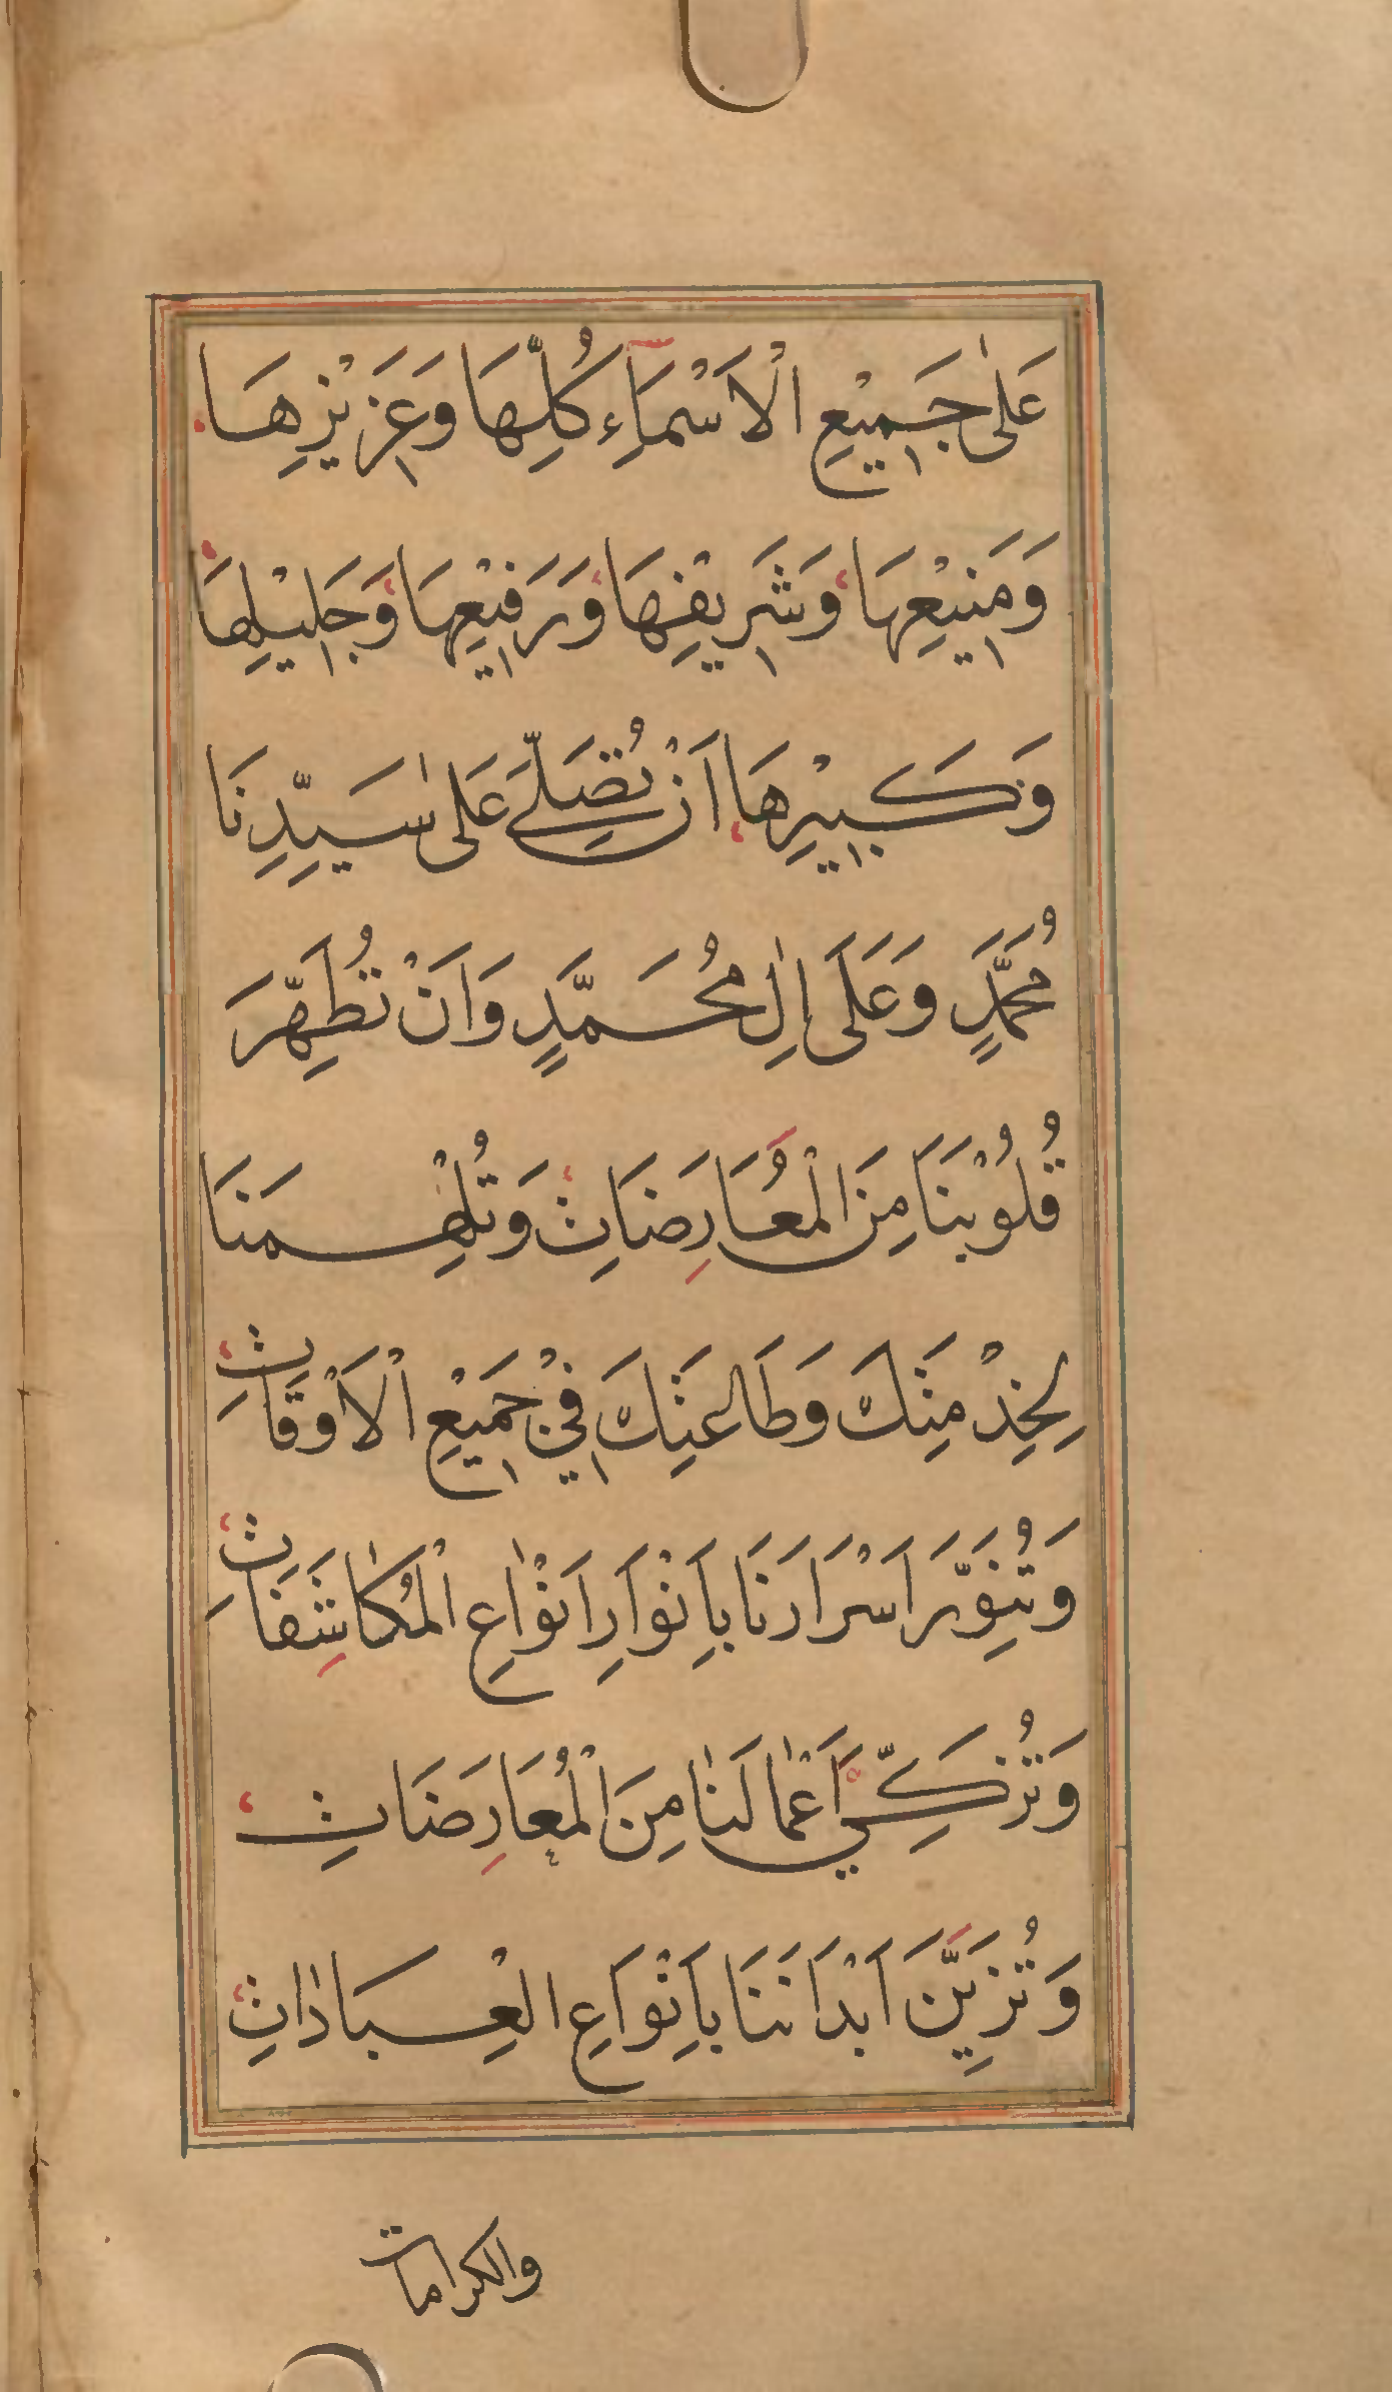 عَلٰى جَمِيْعِ الْاَسْمَآءِ كُلِّهَا وَعَزِيْزِهَا
وَمَنِيْعِهَا وَشَرِيْفِهَا وَرَفِيْعِهَا وَجَلِيْلِهَا
وَكَبِيْرِهَا اَنْ تُصَلِّيَ عَلٰى سَيِّدِنَا
مُحَمَّدٍ وَعَلَى اٰلِ مُحَمَّدٍ وَاَنْ تُطَهِّرَ
قُلُوْبَنَا مِنَ الْمُعَارِضَاتِ وَتُلْهِمَنَا
لِخِدْمَتِكَ وَطَاعَتِكَ فِيْ جَمِيْعِ الْاَوْقَاتِ
وَتُنَوِّرَ اَسْرَارَنَا بِاَنْوَارِ اَنْوٰاعِ الْمُكٰاشَفَاتِ
وَتُزَكِّيَ اَعْمٰالَنٰا مِنَ الْمُعَارِضَاتِ
وَتُزَيِّنَ اَبْدَانَنَا بِاَنْوَاعِ الْعِبَادٰاتِ
والكرامات